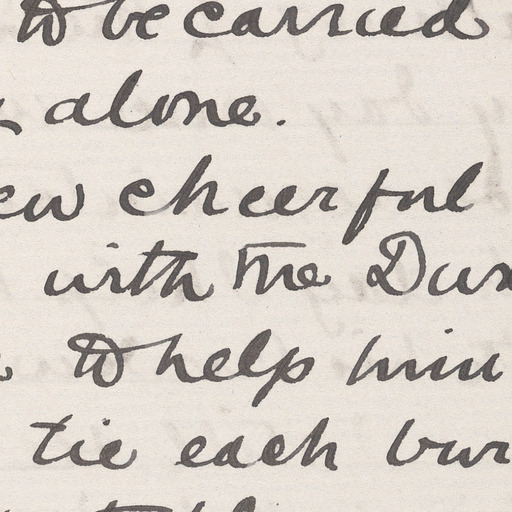 to be carried
alone.
ew cheerful
with the Dun
to help him
tie each bur